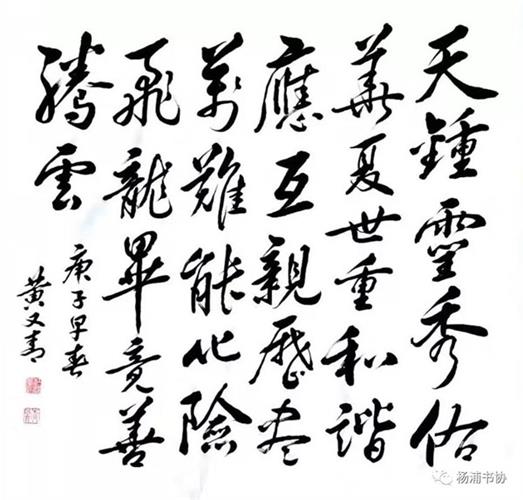 天鍾靈秀佑
華夏世重和諧
應互親歷盡
萬難能化險
飛龍畢竟善
騰雲
庚子早春
黄又青
杨浦书协